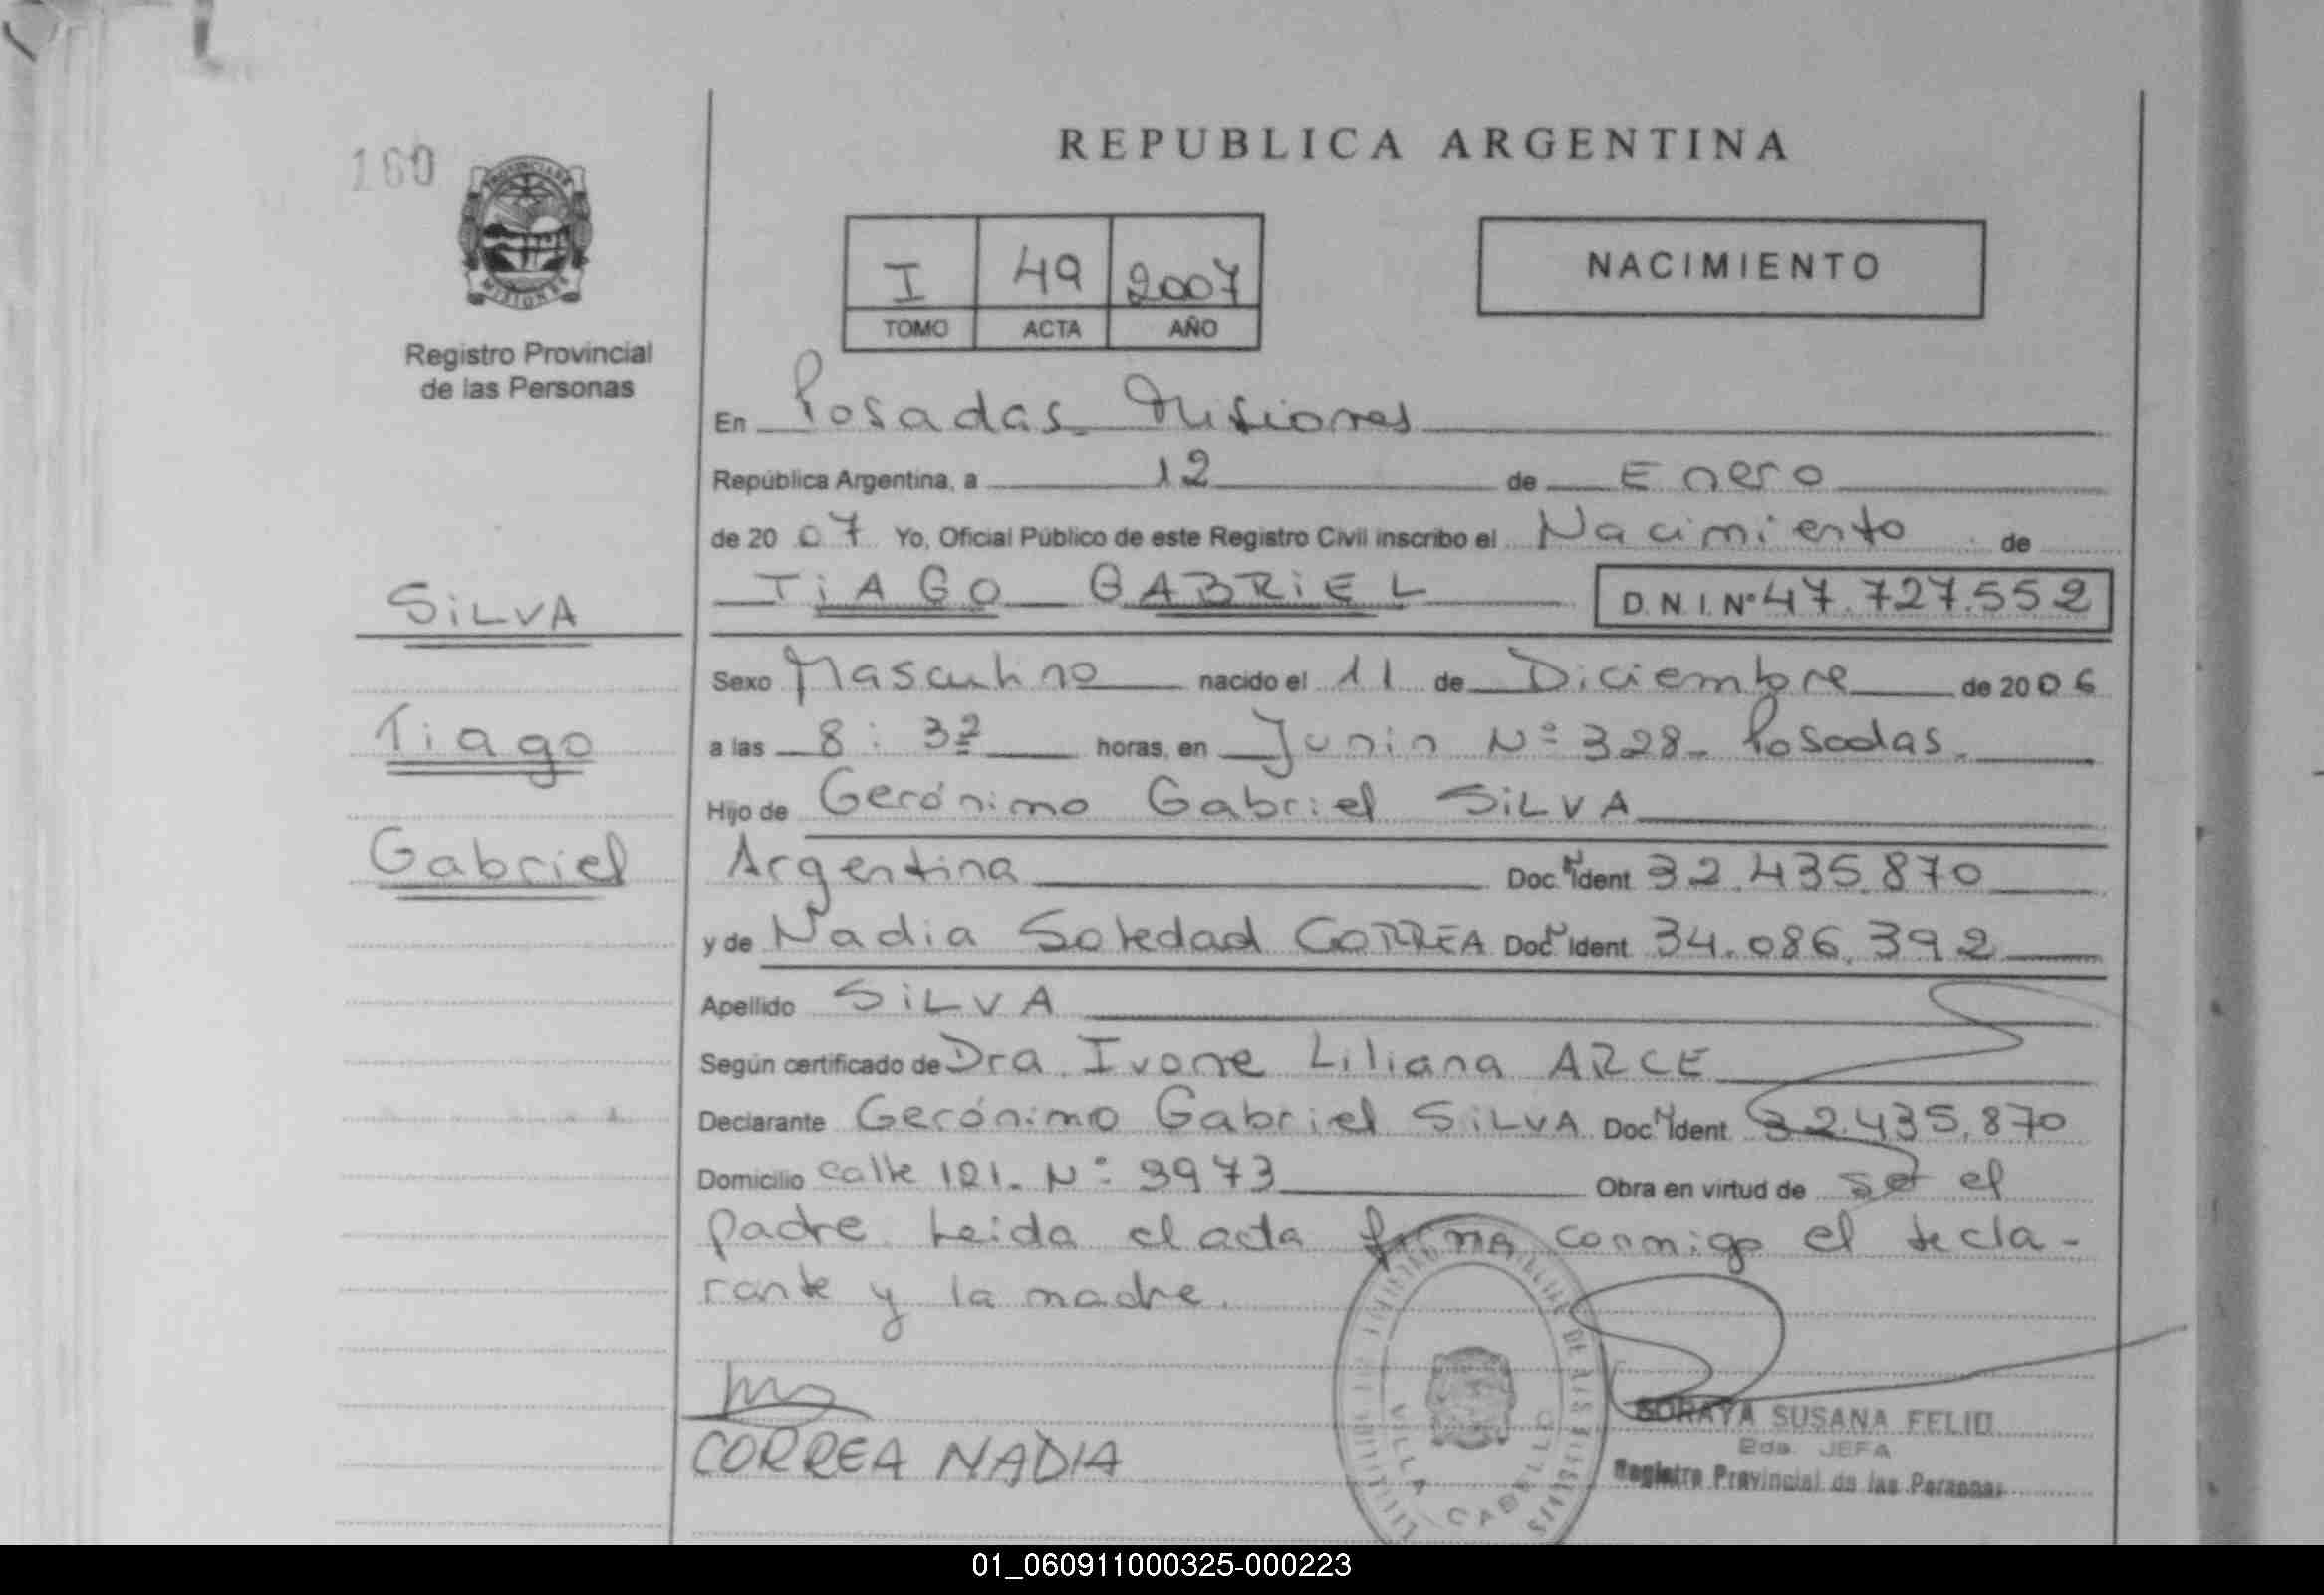 REPUBLICA ARGENTINA
160
PROVINCIA DE
MISIONES
Registro Provincial
de las Personas
I 49 2007
TOMO ACTA AÑO
NACIMIENTO
En Posadas Misiones
República Argentina, a 12 de Enero
de 20 07 Yo, Oficial Público de este Registro Civil inscribo el Nacimiento de
TiAGO GABRiEL D.N.I. Nº 47.727.552
SiLVA
Tiago
Gabriel
Sexo Masculino nacido el 11 de Diciembre de 20 06
a las 8:32 horas, en Junin Nº 328- Posadas.
Hijo de Gerónimo Gabriel SiLVA
Argentina Doc. N Ident 32.435.870
y de Nadia Soledad CORREA Doc N Ident 34.086.392
Apellido SiLVA
Según certificado de Dra. Ivone Liliana ARCE
Declarante Gerónimo Gabriel SiLVA Doc N Ident 32.435.870
Domicilio calle 121. Nº 3973 Obra en virtud de ser el
padre. Leida el acta firma conmigo el decla-
rante y la madre.
CORREA NADIA
VILLA CABELLO
SORAYA SUSANA FELIU
2da. JEFA
Registro Provincial de las Personas
01_060911000325-000223